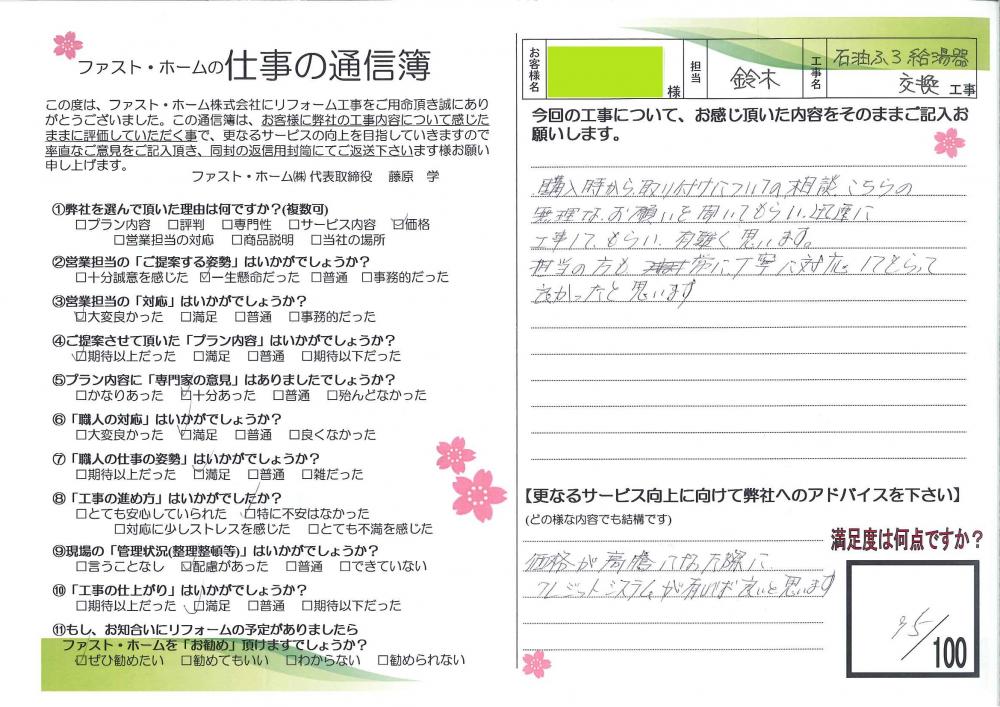 ファスト・ホームの仕事の通信簿
この度は、ファスト・ホーム株式会社にリフォーム工事をご用命頂き誠にあり
がとうございました。この通信簿は、お客様に弊社の工事内容について感じた
ままに評価していただく事で、更なるサービスの向上を目指していきますので
率直なご意見をご記入頂き、同封の返信用封筒にてご返送下さいます様お願い
申し上げます。
ファスト・ホーム㈱ 代表取締役 藤原 学
①弊社を選んで頂いた理由は何ですか?(複数可)
□プラン内容 □評判 □専門性 □サービス内容 ☑価格
□営業担当の対応 □商品説明 □当社の場所
②営業担当の「ご提案する姿勢」はいかがでしょうか?
□十分誠意を感じた ☑一生懸命だった □普通 □事務的だった
③営業担当の「対応」はいかがでしょうか?
☑大変良かった □満足 □普通 □事務的だった
④ご提案させて頂いた「プラン内容」はいかがでしょうか?
☑期待以上だった □満足 □普通 □期待以下だった
⑤プラン内容に「専門家の意見」はありましたでしょうか?
□かなりあった ☑十分あった □普通 □殆んどなかった
⑥「職人の対応」はいかがでしょうか?
□大変良かった ☑満足 □普通 □良くなかった
⑦「職人の仕事の姿勢」はいかがでしょうか?
□期待以上だった ☑満足 □普通 □雑だった
⑧「工事の進め方」はいかがでしたか?
□とても安心していられた ☑特に不安はなかった
□対応に少しストレスを感じた □とても不満を感じた
⑨現場の「管理状況(整理整頓等)」はいかがでしょうか?
□言うことなし ☑配慮があった □普通 □できていない
⑩「工事の仕上がり」はいかがでしょうか?
□期待以上だった ☑満足 □普通 □期待以下だった
⑪もし、お知合いにリフォームの予定がありましたら
ファスト・ホームを「お勧め」頂けますでしょうか?
☑ぜひ勧めたい □勧めてもいい □わからない □勧められない
お客様名 様 担当 鈴木 工事名 石油ふろ給湯器
交換 工事
今回の工事について、お感じ頂いた内容をそのままご記入お
願いします。
購入時から、取り付けについての相談こちらの
無理なお願いを聞いてもらい、迅速に
工事してもらい、有難く思います。
担当の方も 常に丁寧に対応してもらって
良かったと思います
【更なるサービス向上に向けて弊社へのアドバイスを下さい】
(どの様な内容でも結構です)
価格が高騰になった際に
クレジットシステムが有れば良いと思います
満足度は何点ですか?
95/100